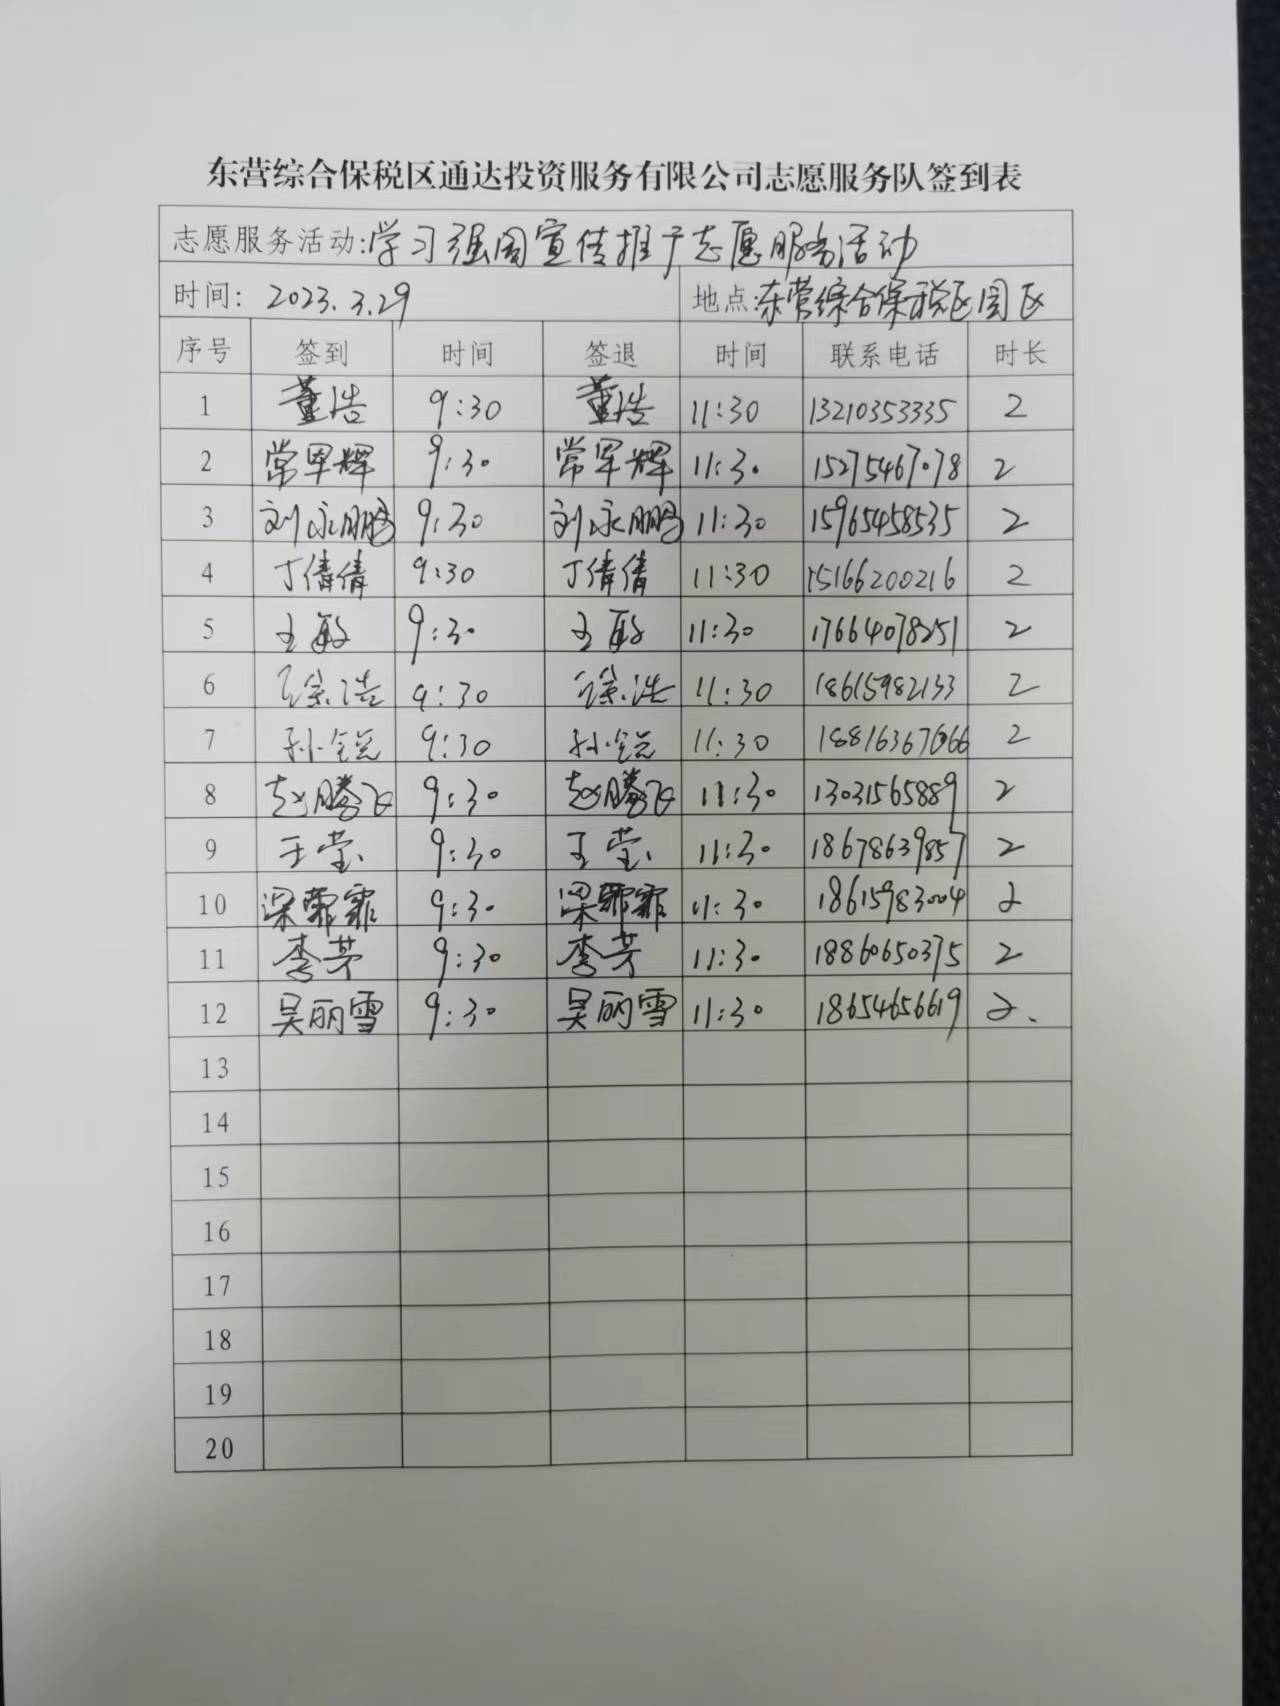 东营综合保税区通达投资服务有限公司志愿服务队签到表
志愿服务活动:学习强国宣传推广志愿服务活动
时间: 2023.3.29 地点:东营综合保税区园区
序号 签到 时间 签退 时间 联系电话 时长
1 董浩 9:30 董浩 11:30 13210353335 2
2 常军辉 9:30 常军辉 11:30 15275467078 2
3 刘永鹏 9:30 刘永鹏 11:30 15965458535 2
4 丁倩倩 9:30 丁倩倩 11:30 15166200216 2
5 王敏 9:30 王敏 11:30 17664078251 2
6 徐浩 9:30 徐浩 11:30 18615982133 2
7 孙锐 9:30 孙锐 11:30 2
8 赵腾飞 9:30 赵腾飞 11:30 13031565889 2
9 王莹 9:30 王莹 11:30 18678639857 2
10 梁霏霏 9:30 梁霏霏 11:30 18615983004 2
11 李芳 9:30 李芳 11:30 18860650375 2
12 吴丽雪 9:30 吴丽雪 11:30 18654656619 2.
13
14
15
16
17
18
19
20